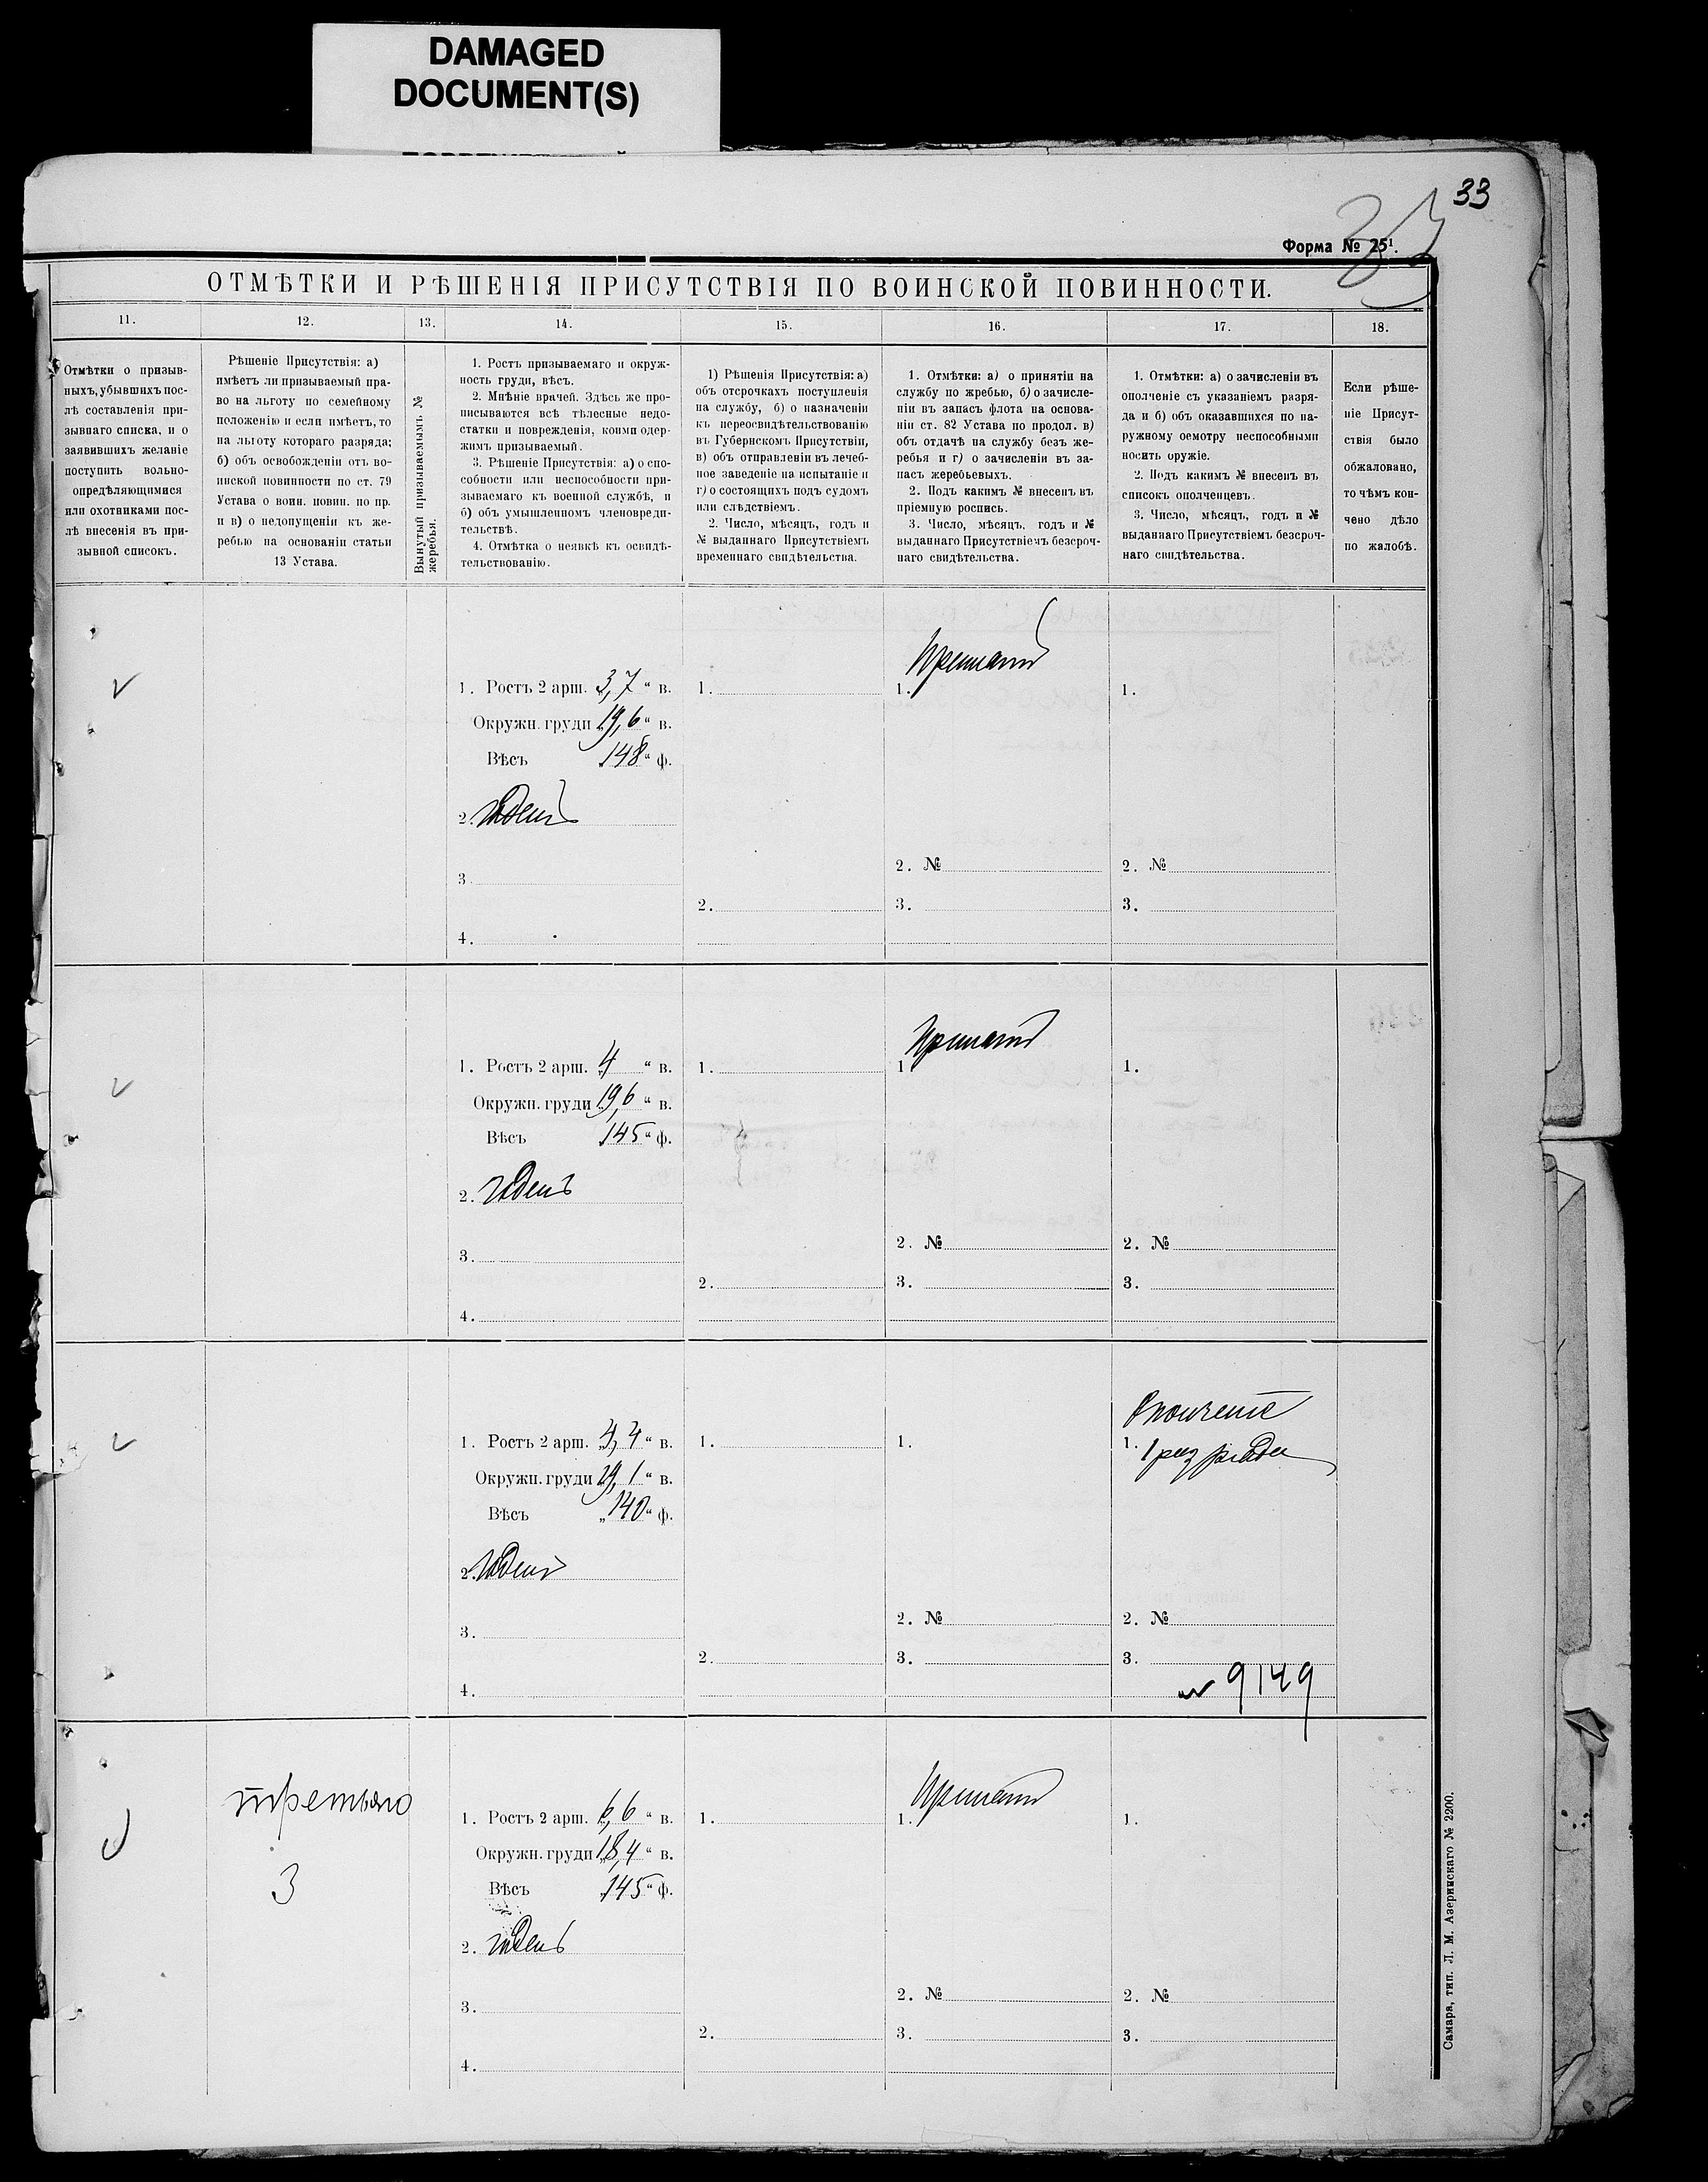 DAMAGED
DOCUMENT(S)
33
Форма № 25¹.
ОТМѢТКИ И РѢШЕНІЯ ПРИСУТСТВІЯ ПО ВОИНСКОЙ ПОВИННОСТИ.
11.
12.
13.
14.
15.
16.
17.
18.
Отмѣтки о призыв-
ныхъ, убывшихъ пос-
лѣ составленія при-
зывнаго списка, и о
заявившихъ желаніе
поступить вольно-
опредѣляющимися
или охотниками пос-
лѣ внесенія въ при-
зывной списокъ.
Рѣшеніе Присутствія: а)
имѣетъ ли призываемый пра-
во на льготу по семейному
положенію и если имѣетъ, то
на льготу котораго разряда;
б) объ освобожденіи отъ во-
инской повинности по ст. 79
Устава о воин. повин. по пр.
и в) о недопущеніи къ же-
ребью на основаніи статьи
13 Устава.
Вынутый призываемымъ №
жеребья.
1. Ростъ призываемаго и окруж-
ность груди, вѣсъ.
2. Мнѣніе врачей. Здѣсь же про-
писываются всѣ тѣлесные недо-
статки и поврежденія, коими одер-
жимъ призываемый.
3. Рѣшеніе Присутствія: а) о спо-
собности или неспособности при-
зываемаго къ военной службѣ, и
б) объ умышленномъ членовреди-
тельствѣ.
4. Отмѣтка о неявкѣ къ освидѣ-
тельствованію.
1) Рѣшенія Присутствія: а)
объ отсрочкахъ поступленія
на службу, б) о назначеніи
къ переосвидѣтельствованію
въ Губернскомъ Присутствіи,
в) объ отправленіи въ лечеб-
ное заведеніе на испытаніе и
г) о состоящихъ подъ судомъ
или слѣдствіемъ.
2. Число, мѣсяцъ, годъ и
№ выданнаго Присутствіемъ
временнаго свидѣтельства.
1. Отмѣтки: а) о принятіи на
службу по жребью, б) о зачисле-
ніи въ запасъ флота на основа-
ніи ст. 82 Устава по продол. в)
объ отдачѣ на службу безъ же-
ребья и г) о зачисленіи въ за-
пасъ жеребьевыхъ.
2. Подъ какимъ № внесенъ въ
пріемную роспись.
3. Число, мѣсяцъ, годъ и №
выданнаго Присутствіемъ безсроч-
наго свидѣтельства.
1. Отмѣтки: а) о зачисленіи въ
ополченіе съ указаніемъ разря-
да и б) объ оказавшихся по на-
ружному осмотру неспособными
носить оружіе.
2. Подъ какимъ № внесенъ въ
списокъ ополченцевъ.
3. Число, мѣсяцъ, годъ и №
выданнаго Присутствіемъ безсроч-
наго свидѣтельства.
Если рѣше-
ніе Присут-
ствія было
обжаловано,
то чѣмъ кон-
чено дѣло
по жалобѣ.
1. Ростъ 2 арш. „3,7“ в.
Окружн. груди „19,6“ в.
Вѣсъ „148“ ф.
2. годенъ
3.
4.
1.
2.
Принятъ
1.
2. №
3.
1.
2. №
3.
1. Ростъ 2 арш. „4“ в.
Окружн. груди „19,6“ в.
Вѣсъ „145“ ф.
2. годенъ
3.
4.
1.
2.
Принятъ
1.
2. №
3.
1.
2. №
3.
1. Ростъ 2 арш. „4,4“ в.
Окружн. груди „19,1“ в.
Вѣсъ „140“ ф.
2. годенъ
3.
4.
1.
2.
1.
2. №
3.
Ополченіе
1. 1 разряда
2. №
3.
№ 9149
третьяго
3
1. Ростъ 2 арш. „6,6“ в.
Окружн. груди „18,4“ в.
Вѣсъ „145“ ф.
2. годенъ
3.
4.
1.
2.
Принятъ
1.
2. №
3.
1.
2. №
3.
Самара, тип. Л. М. Азеринскаго № 2200.